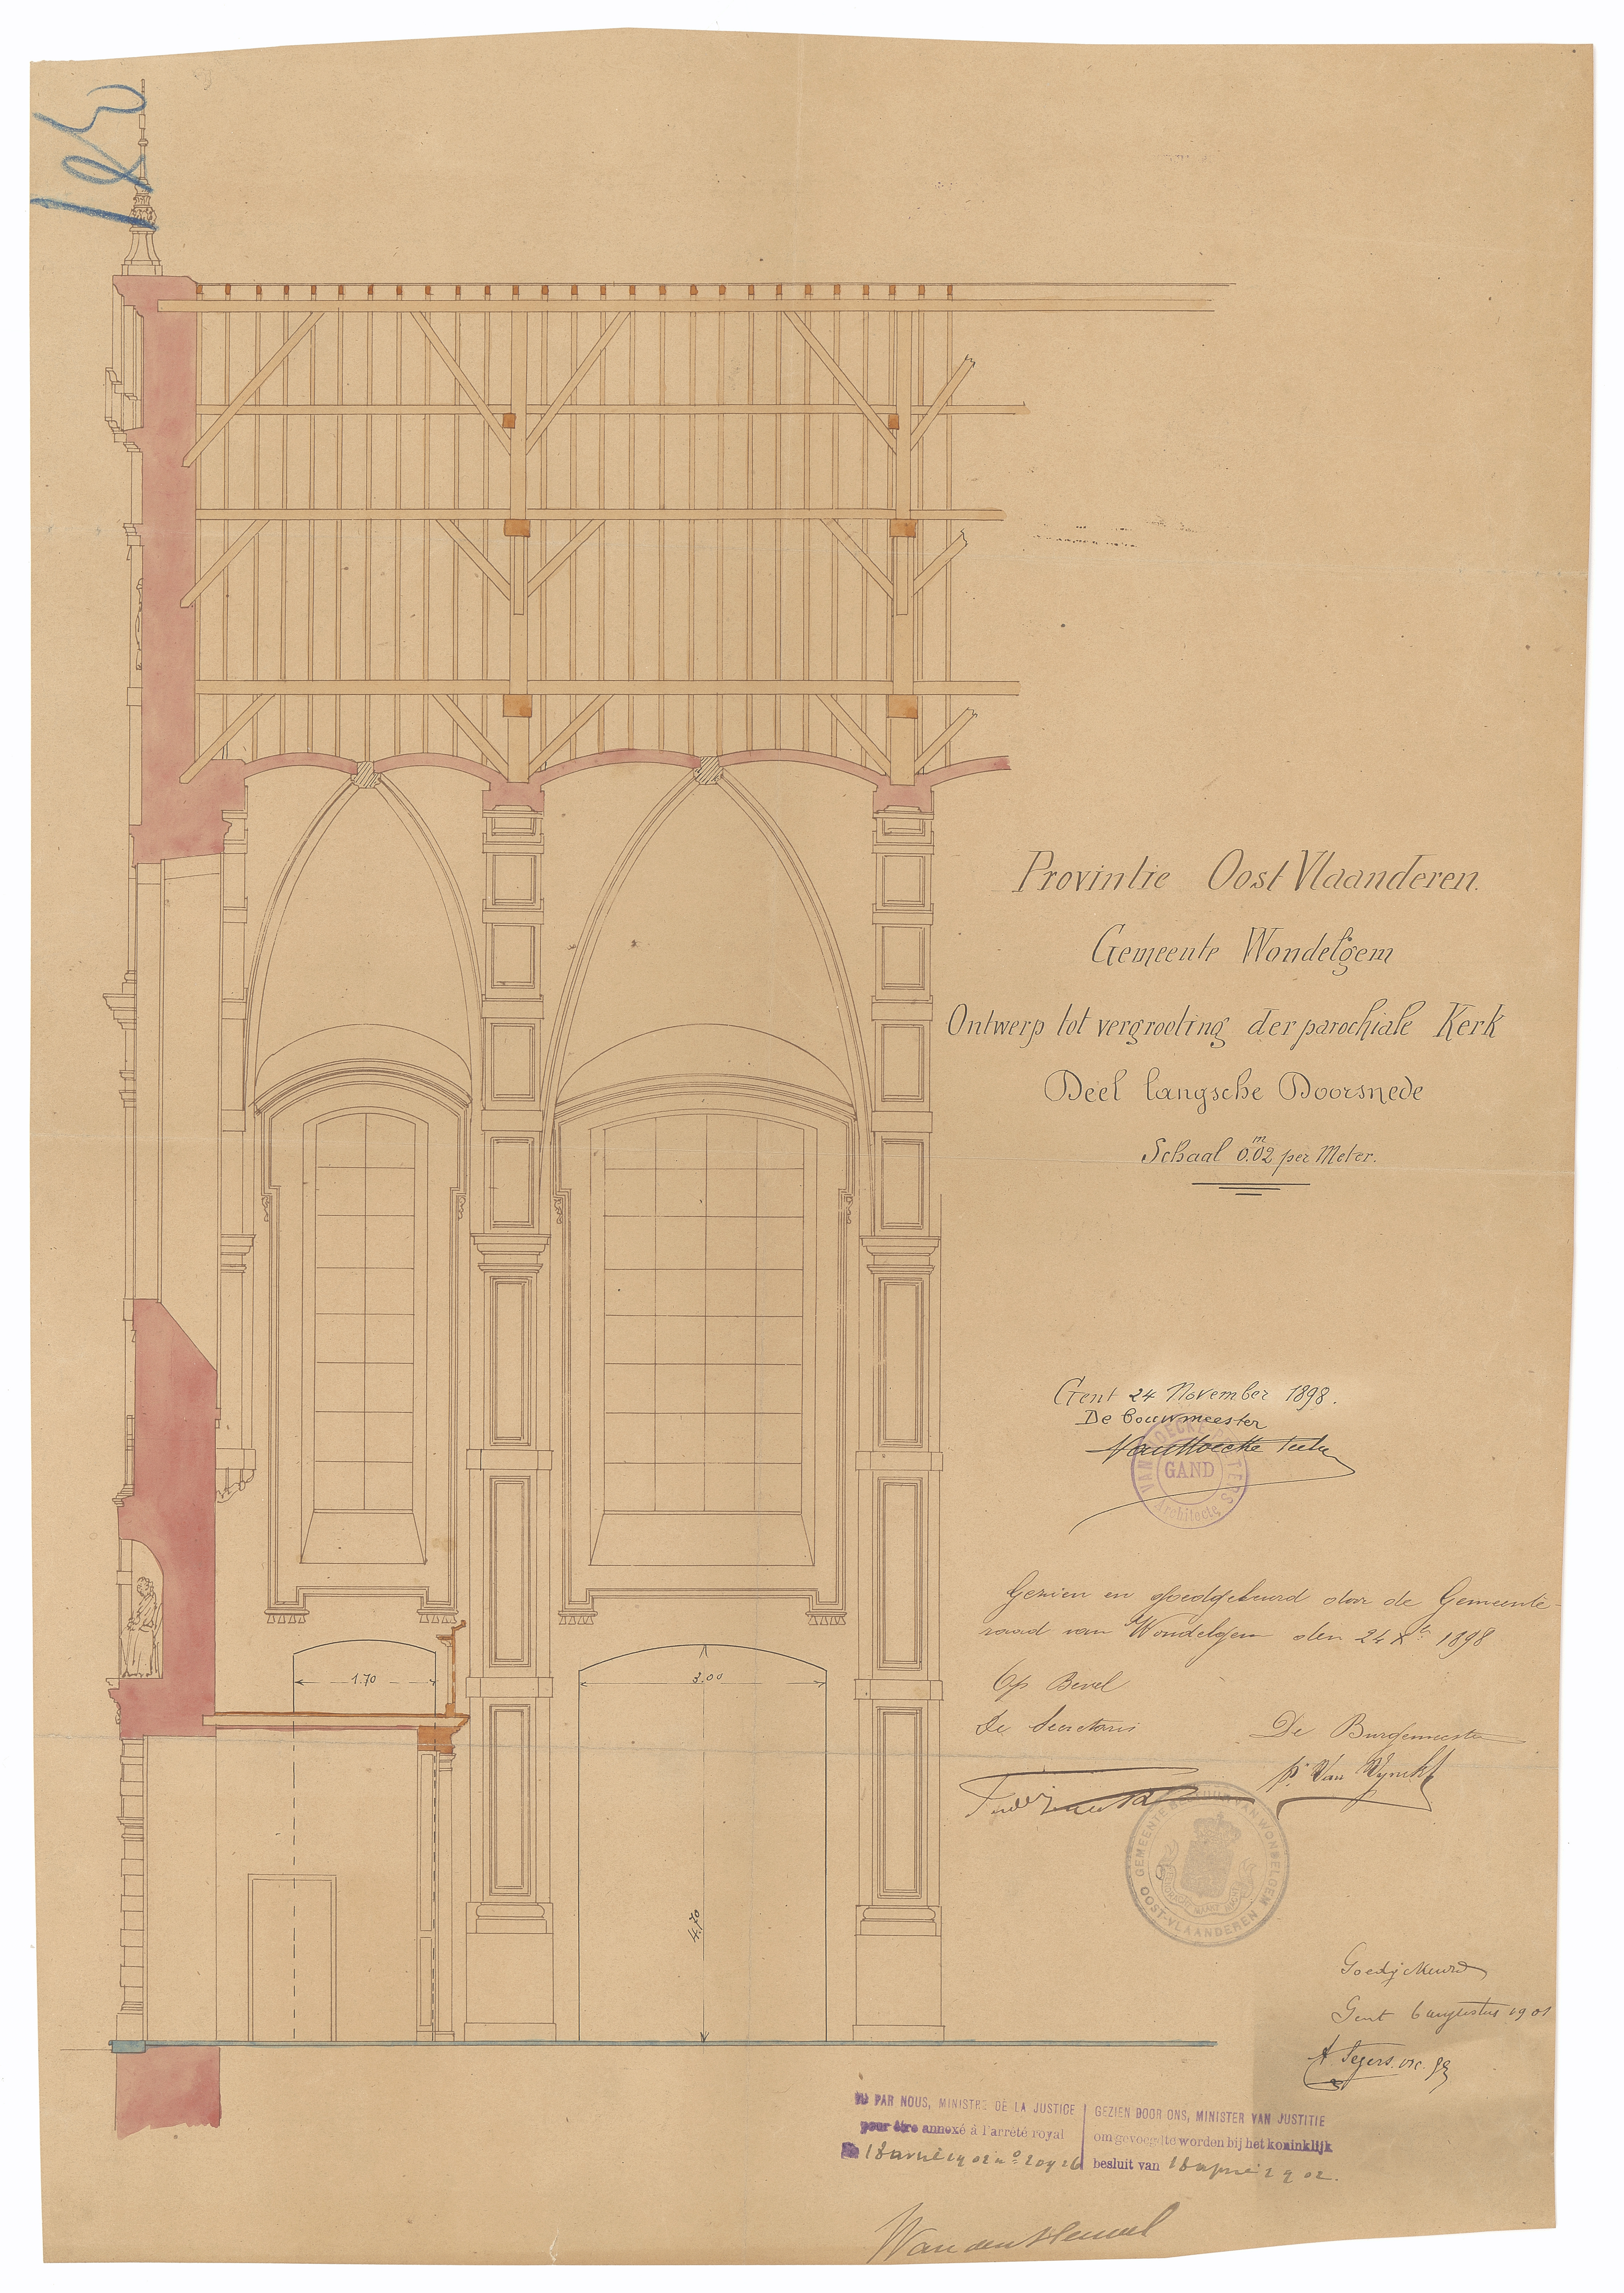 Provintie Oost Vlaanderen.
Gemeente Wondelgem
Ontwerp tot vergrooting der parochiale Kerk
Deel langsche Doorsnede
Schaal 0.m02 per Meter.
Gent 24 November 1898.
De bouwmeester
VAN HOECKE PEETERS
GAND
Architecte
Gezien en Goedgekeurd door de Gemeente-
raad van Wondelgem den 24 Xbr 1898
Op Bevel
De Secretaris
De Burgemeester
GEMEENTE BESTUUR VAN WONDELGEM
OOST-VLAANDEREN
Goedgekeurd
Gent 6 augustus 1901
A. Segers vic. gg
VU PAR NOUS, MINISTRE DE LA JUSTICE
pour être annexé à l'arrêté royal
Du 18 avril 1902 no
GEZIEN DOOR ONS, MINISTER VAN JUSTITIE
om gevoegd te worden bij het koninklijk
besluit van 18 april 1902.
Van den Heuvel
1.70
3.00
4.70